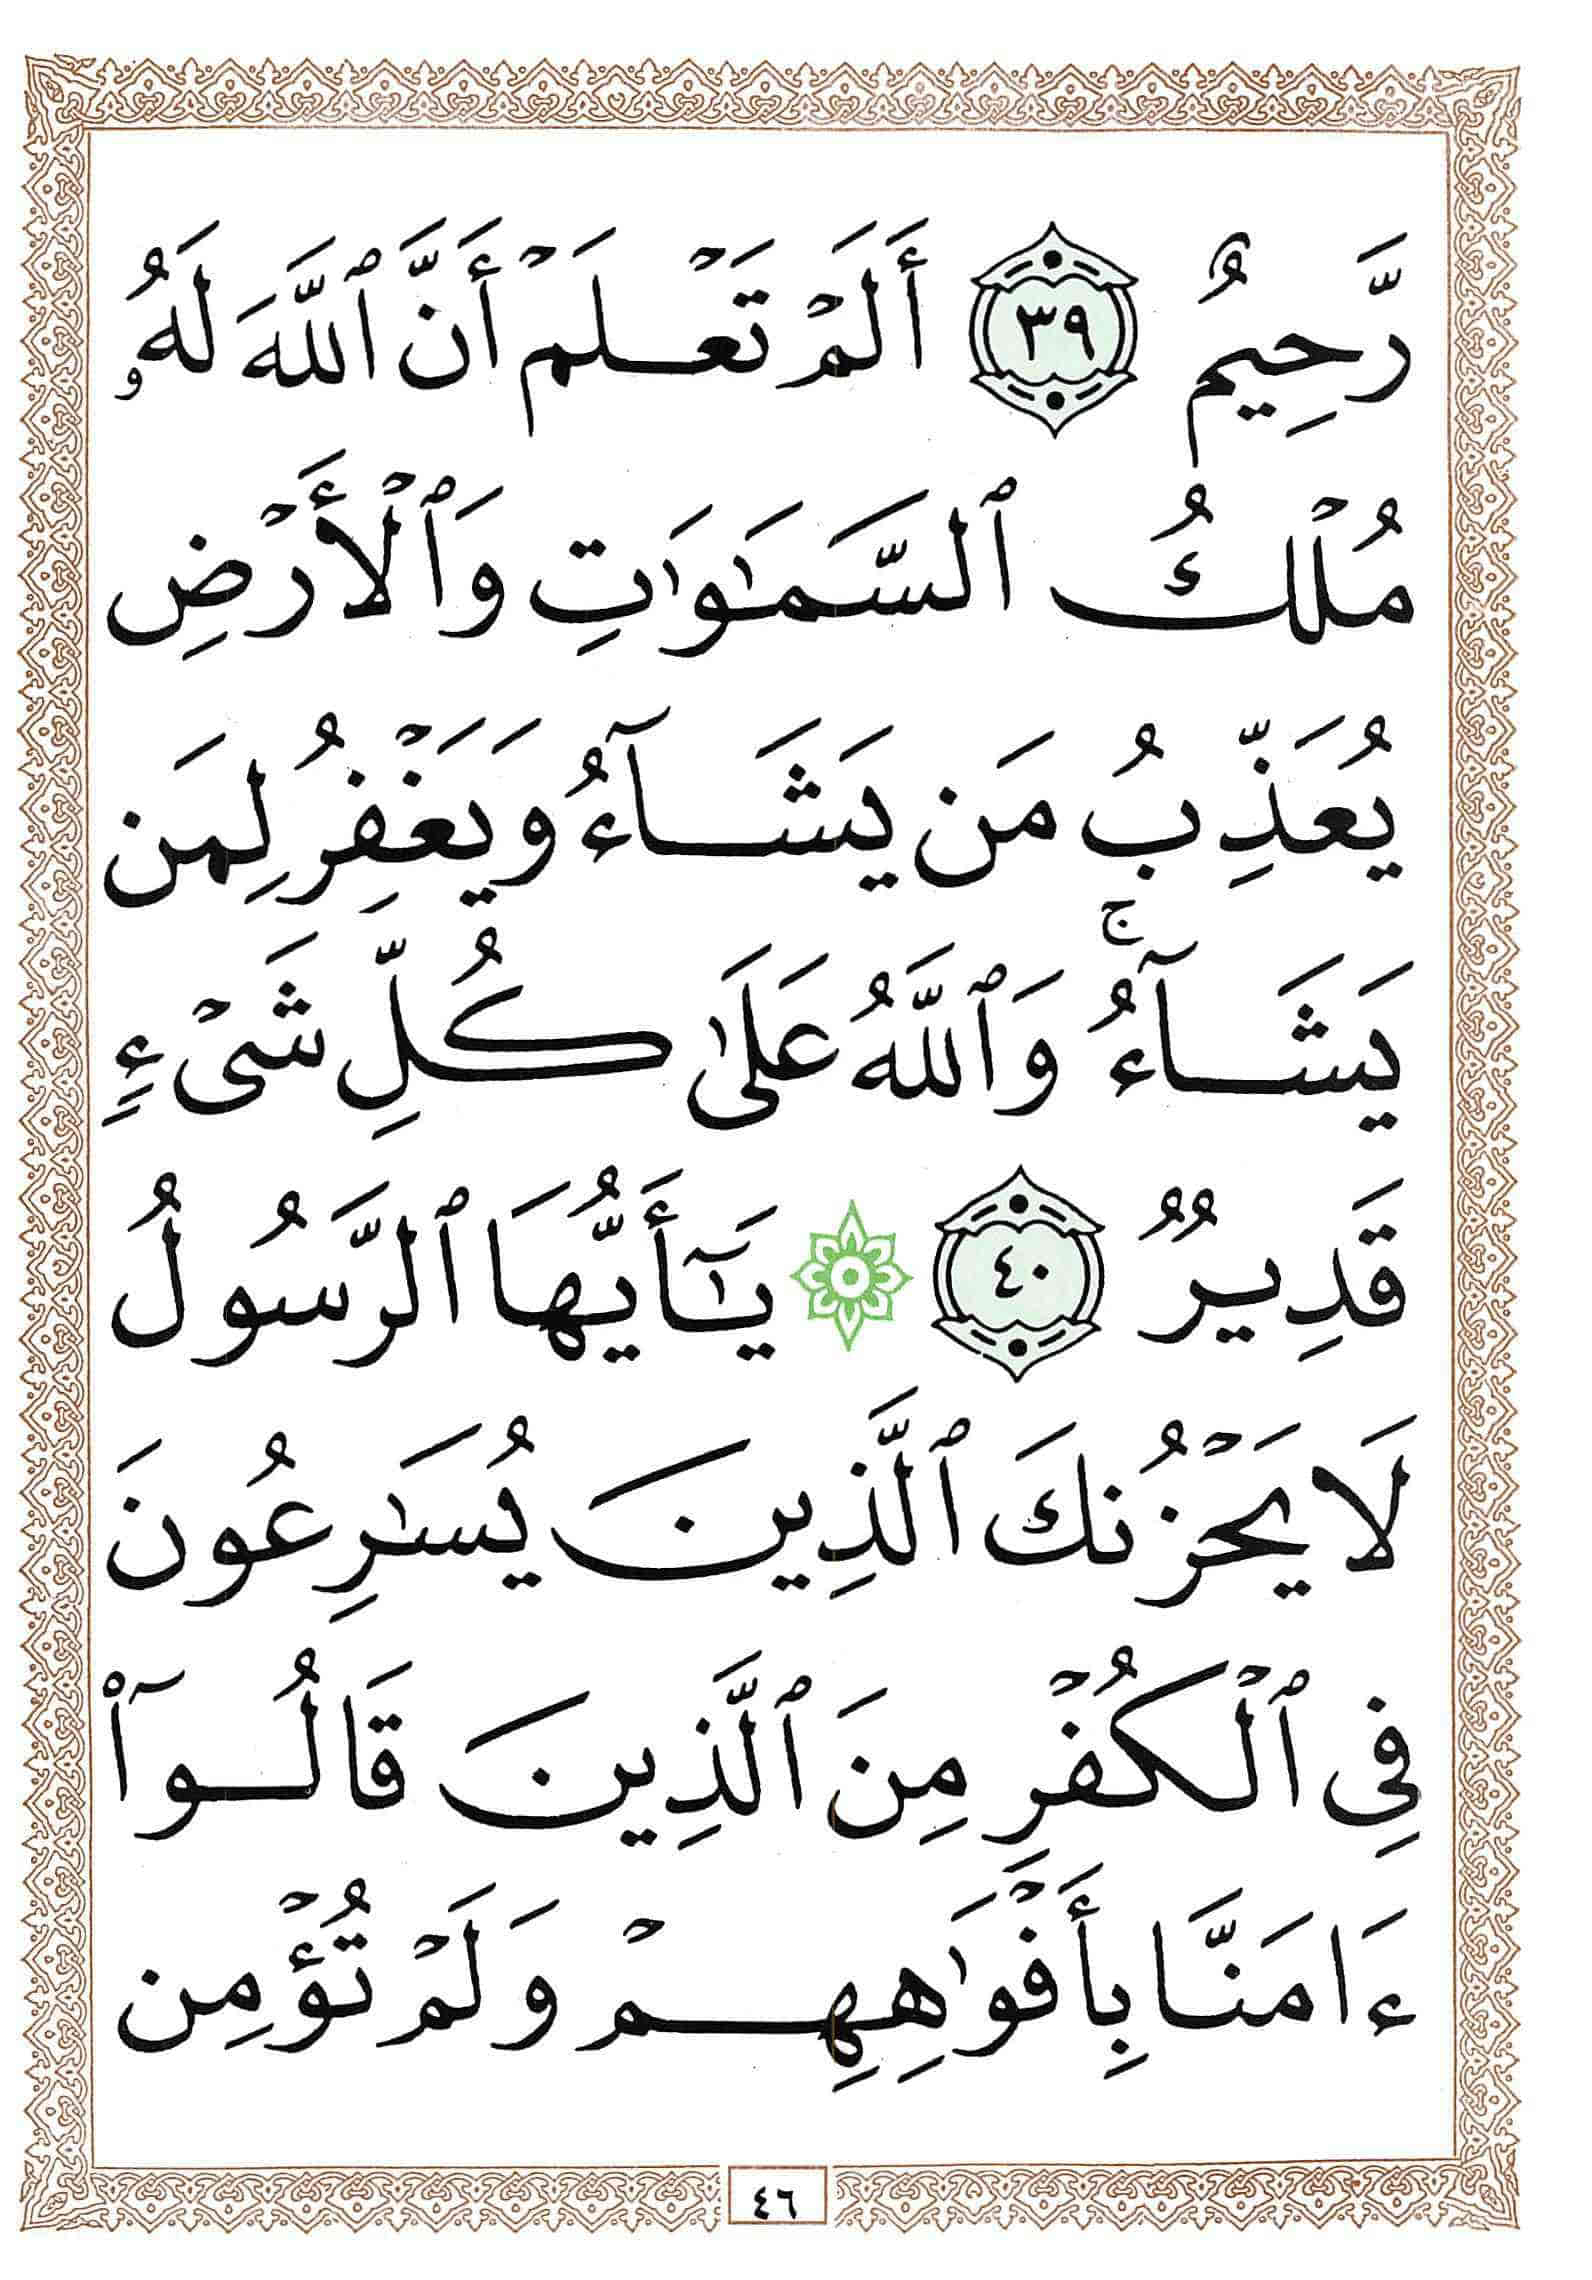 رَّحِيمٌ ٣٩ أَلَمْ تَعْلَمْ أَنَّ ٱللَّهَ لَهُۥ
مُلْكُ ٱلسَّمَٰوَٰتِ وَٱلْأَرْضِ
يُعَذِّبُ مَن يَشَآءُ وَيَغْفِرُ لِمَن
يَشَآءُ ۚ وَٱللَّهُ عَلَىٰ كُلِّ شَىْءٍ
قَدِيرٌ ٤٠ ۞ يَٰٓأَيُّهَا ٱلرَّسُولُ
لَا يَحْزُنكَ ٱلَّذِينَ يُسَٰرِعُونَ
فِى ٱلْكُفْرِ مِنَ ٱلَّذِينَ قَالُوٓا۟
ءَامَنَّا بِأَفْوَٰهِهِمْ وَلَمْ تُؤْمِن
٤٦